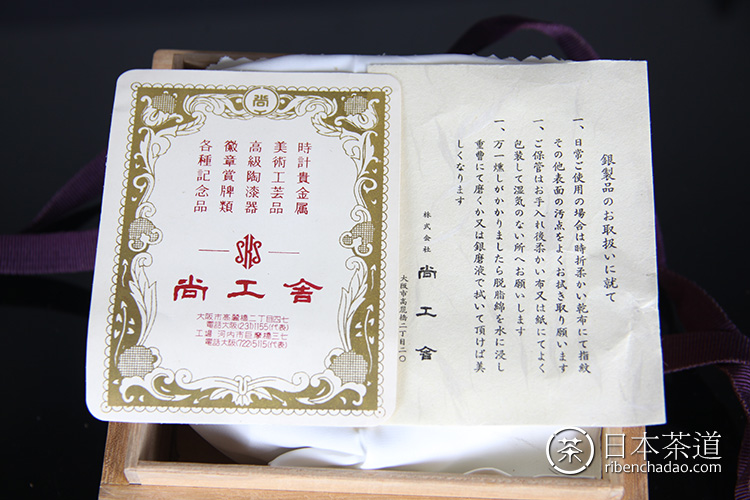 尚
時計貴金属
美術工芸品
高級陶漆器
徽章賞牌類
各種記念品
SKS
尚工舎
大阪市高麗橋二丁目四七
電話大阪(231)1155(代表)
工場 河内市巨摩橋三七
電話大阪(722)5115(代表)
銀製品のお取扱いに就て
一、日常ご使用の場合は時折柔かい乾布にて指紋
その他表面の汚点をよくお拭き取り願います
一、ご保管はお手入れ後柔かい布又は紙にてよく
包装して湿気のない所へお願いします
一、万一燻しがかかりましたら脱脂綿を水に浸し
重曹にて磨くか又は銀磨液で拭いて頂けば美
しくなります
株式会社 尚工舎
大阪市高麗橋二丁目二〇
茶
日本茶道
ribenchadao.com